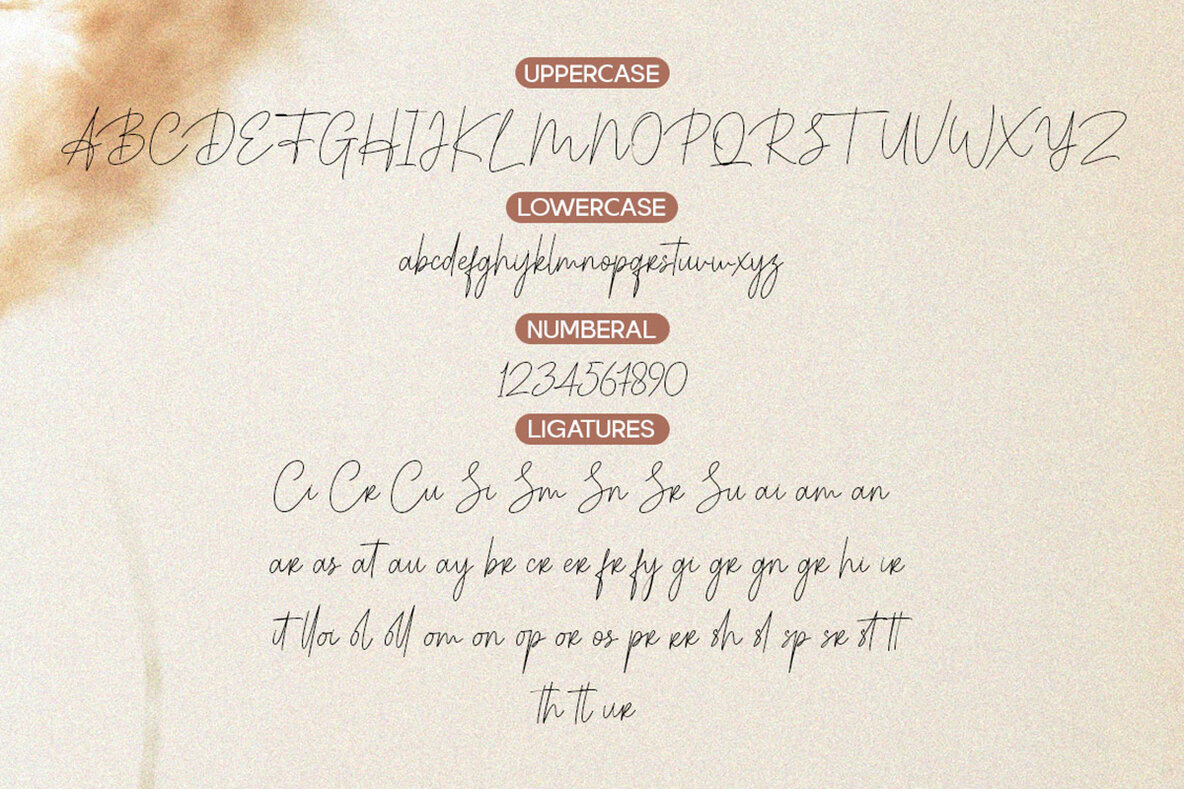 UPPERCASE
ABCDEFGHIJKLMNOPQRSTUVWXYZ
LOWERCASE
abcdefghijklmnopqrstuvwxyz
NUMBERAL
1234567890
LIGATURES
Ci Cr Cu Si Sm Sn Sr Su ai am an
ar as at au ay br cr er fr fy gi gr gn gr hi ir
it ll oi ol oll om on op or os pr rr sh sl sp sr st tt
th tl ur